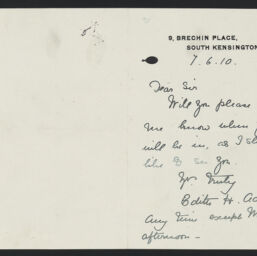 9, BRECHIN PLACE,
SOUTH KENSINGTON
7.6.10.
Dear Sir
Will you please
me know when
will be in, as I
like to see you.
Yrs truly
Edith H.
Any time except
afternoon -